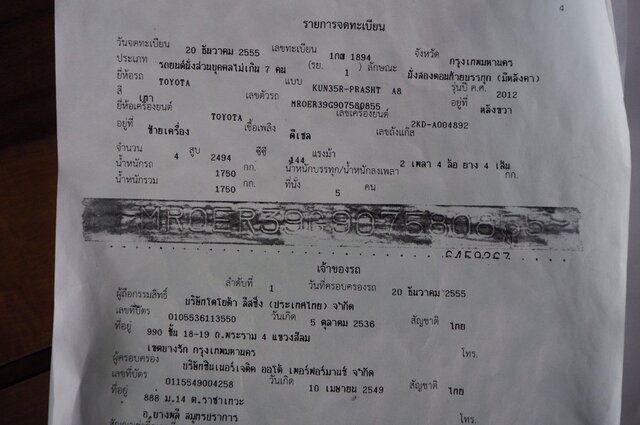 4
รายการจดทะเบียน
วันจดทะเบียน 20 ธันวาคม 2555 เลขทะเบียน 1กฬ 1894 จังหวัด กรุงเทพมหานคร
ประเภท รถยนต์นั่งส่วนบุคคลไม่เกิน 7 คน (รย. 1) ลักษณะ นั่งสองตอนท้ายบรรทุก (มีหลังคา)
ยี่ห้อรถ TOYOTA แบบ KUN35R-PRASHT A8 รุ่นปี ค.ศ. 2012
สี เทา เลขตัวรถ MROER39G907580855 อยู่ที่ หลังขวา
ยี่ห้อเครื่องยนต์ TOYOTA เลขเครื่องยนต์ 2KD-A004892
อยู่ที่ ซ้ายเครื่อง เชื้อเพลิง ดีเซล เลขถังแก๊ส
จำนวน 4 สูบ 2494 ซีซี 144 แรงม้า 2 เพลา 4 ล้อ ยาง 4 เส้น
น้ำหนักรถ 1750 กก. น้ำหนักบรรทุก/น้ำหนักลงเพลา กก.
น้ำหนักรวม 1750 กก. ที่นั่ง 5 คน
เจ้าของรถ
ลำดับที่ 1 วันที่ครอบครองรถ 20 ธันวาคม 2555
ผู้ถือกรรมสิทธิ์ บริษัทโตโยต้า ลีสซิ่ง (ประเทศไทย) จำกัด
เลขที่บัตร 0105536113550 วันเกิด 5 ตุลาคม 2536 สัญชาติ ไทย
ที่อยู่ 990 ชั้น 18-19 ถ.พระราม 4 แขวงสีลม
เขตบางรัก กรุงเทพมหานคร โทร.
ผู้ครอบครอง บริษัทซินเนอร์เจติค ออโต้ เพอร์ฟอร์มานซ์ จำกัด
เลขที่บัตร 0115549004258 วันเกิด 10 เมษายน 2549 สัญชาติ ไทย
ที่อยู่ 888 ม.14 ต.ราชาเทวะ
อ.บางพลี สมุทรปราการ โทร.